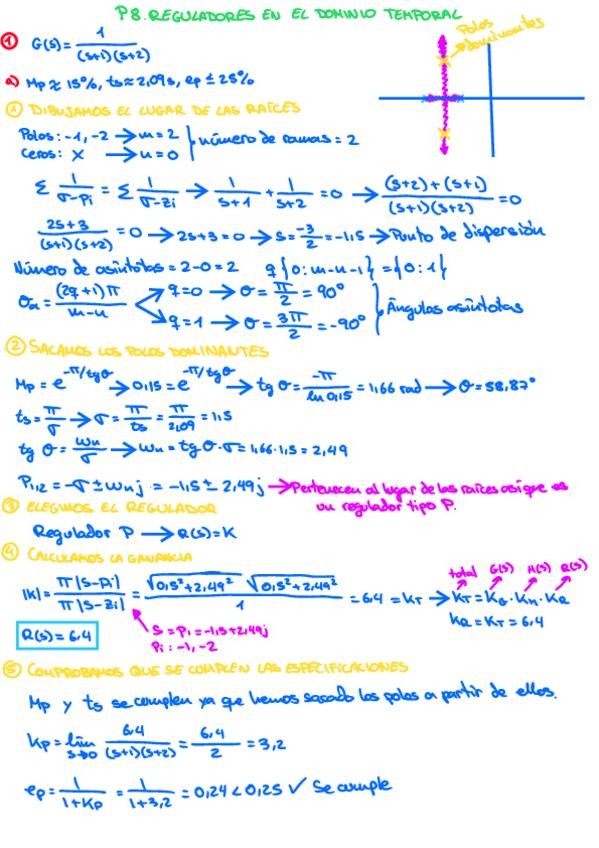 P8. REGULADORES EN EL DOMINIO TEMPORAL
Polos dominantes
① G(s) = 1 / (s+1)(s+2)
a) Mp ≈ 15%, ts ≈ 2,09s, ep ≤ 25%
① DIBUJAMOS EL LUGAR DE LAS RAÍCES
Polos: -1, -2 → m = 2
Ceros: X → n = 0
número de ramas = 2
Σ 1/(σ-Pi) = Σ 1/(σ-Zi) → 1/(s+1) + 1/(s+2) = 0 → ((s+2)+(s+1))/((s+1)(s+2)) = 0
(2s+3)/((s+1)(s+2)) = 0 → 2s+3 = 0 → s = -3/2 = -1,5 → Punto de dispersión
Número de asíntotas = 2-0 = 2 q {0: m-n-1} = {0: 1}
σa = (2q+1)π/(m-n)
q=0 → σ = π/2 = 90°
q=1 → σ = 3π/2 = -90°
Ángulos asíntotas
② SACAMOS LOS POLOS DOMINANTES
Mp = e^(-π/tgσ) → 0,15 = e^(-π/tgσ) → tg σ = -π/ln 0,15 = 1,66 rad → σ = 58,87°
ts = π/σ → σ = π/ts = π/2,09 = 1,5
tg σ = wn/σ → wn = tg σ · σ = 1,66 · 1,5 = 2,49
P1,2 = -σ ± wn j = -1,5 ± 2,49j → Pertenecen al lugar de las raíces así que es
un regulador tipo P.
③ ELEGIMOS EL REGULADOR
Regulador P → R(s) = K
④ CALCULAMOS LA GANANCIA
|K| = π|s-pi| / π|s-zi| = √(0,5²+2,49²) √(0,5²+2,49²) / 1 = 6,4 = KT → KT = KG · KH · KR
total G(s) H(s) R(s)
KR = KT = 6,4
s = P1 = -1,5+2,49j
Pi: -1, -2
R(s) = 6,4
⑤ COMPROBAMOS QUE SE CUMPLEN LAS ESPECIFICACIONES
Mp y ts se cumplen ya que hemos sacado los polos a partir de ellos.
Kp = lim s→0 6,4/((s+1)(s+2)) = 6,4/2 = 3,2
ep = 1/(1+Kp) = 1/(1+3,2) = 0,24 < 0,25 ✓ Se cumple